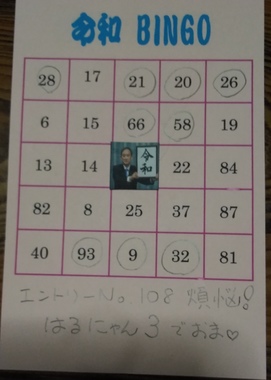 令和 BINGO
28 17 21 20 26
6 15 66 58 19
13 14 令和 22 84
82 8 25 37 87
40 93 9 32 81
エントリーNo.108 煩悩!
はるにゃん3でおま♡